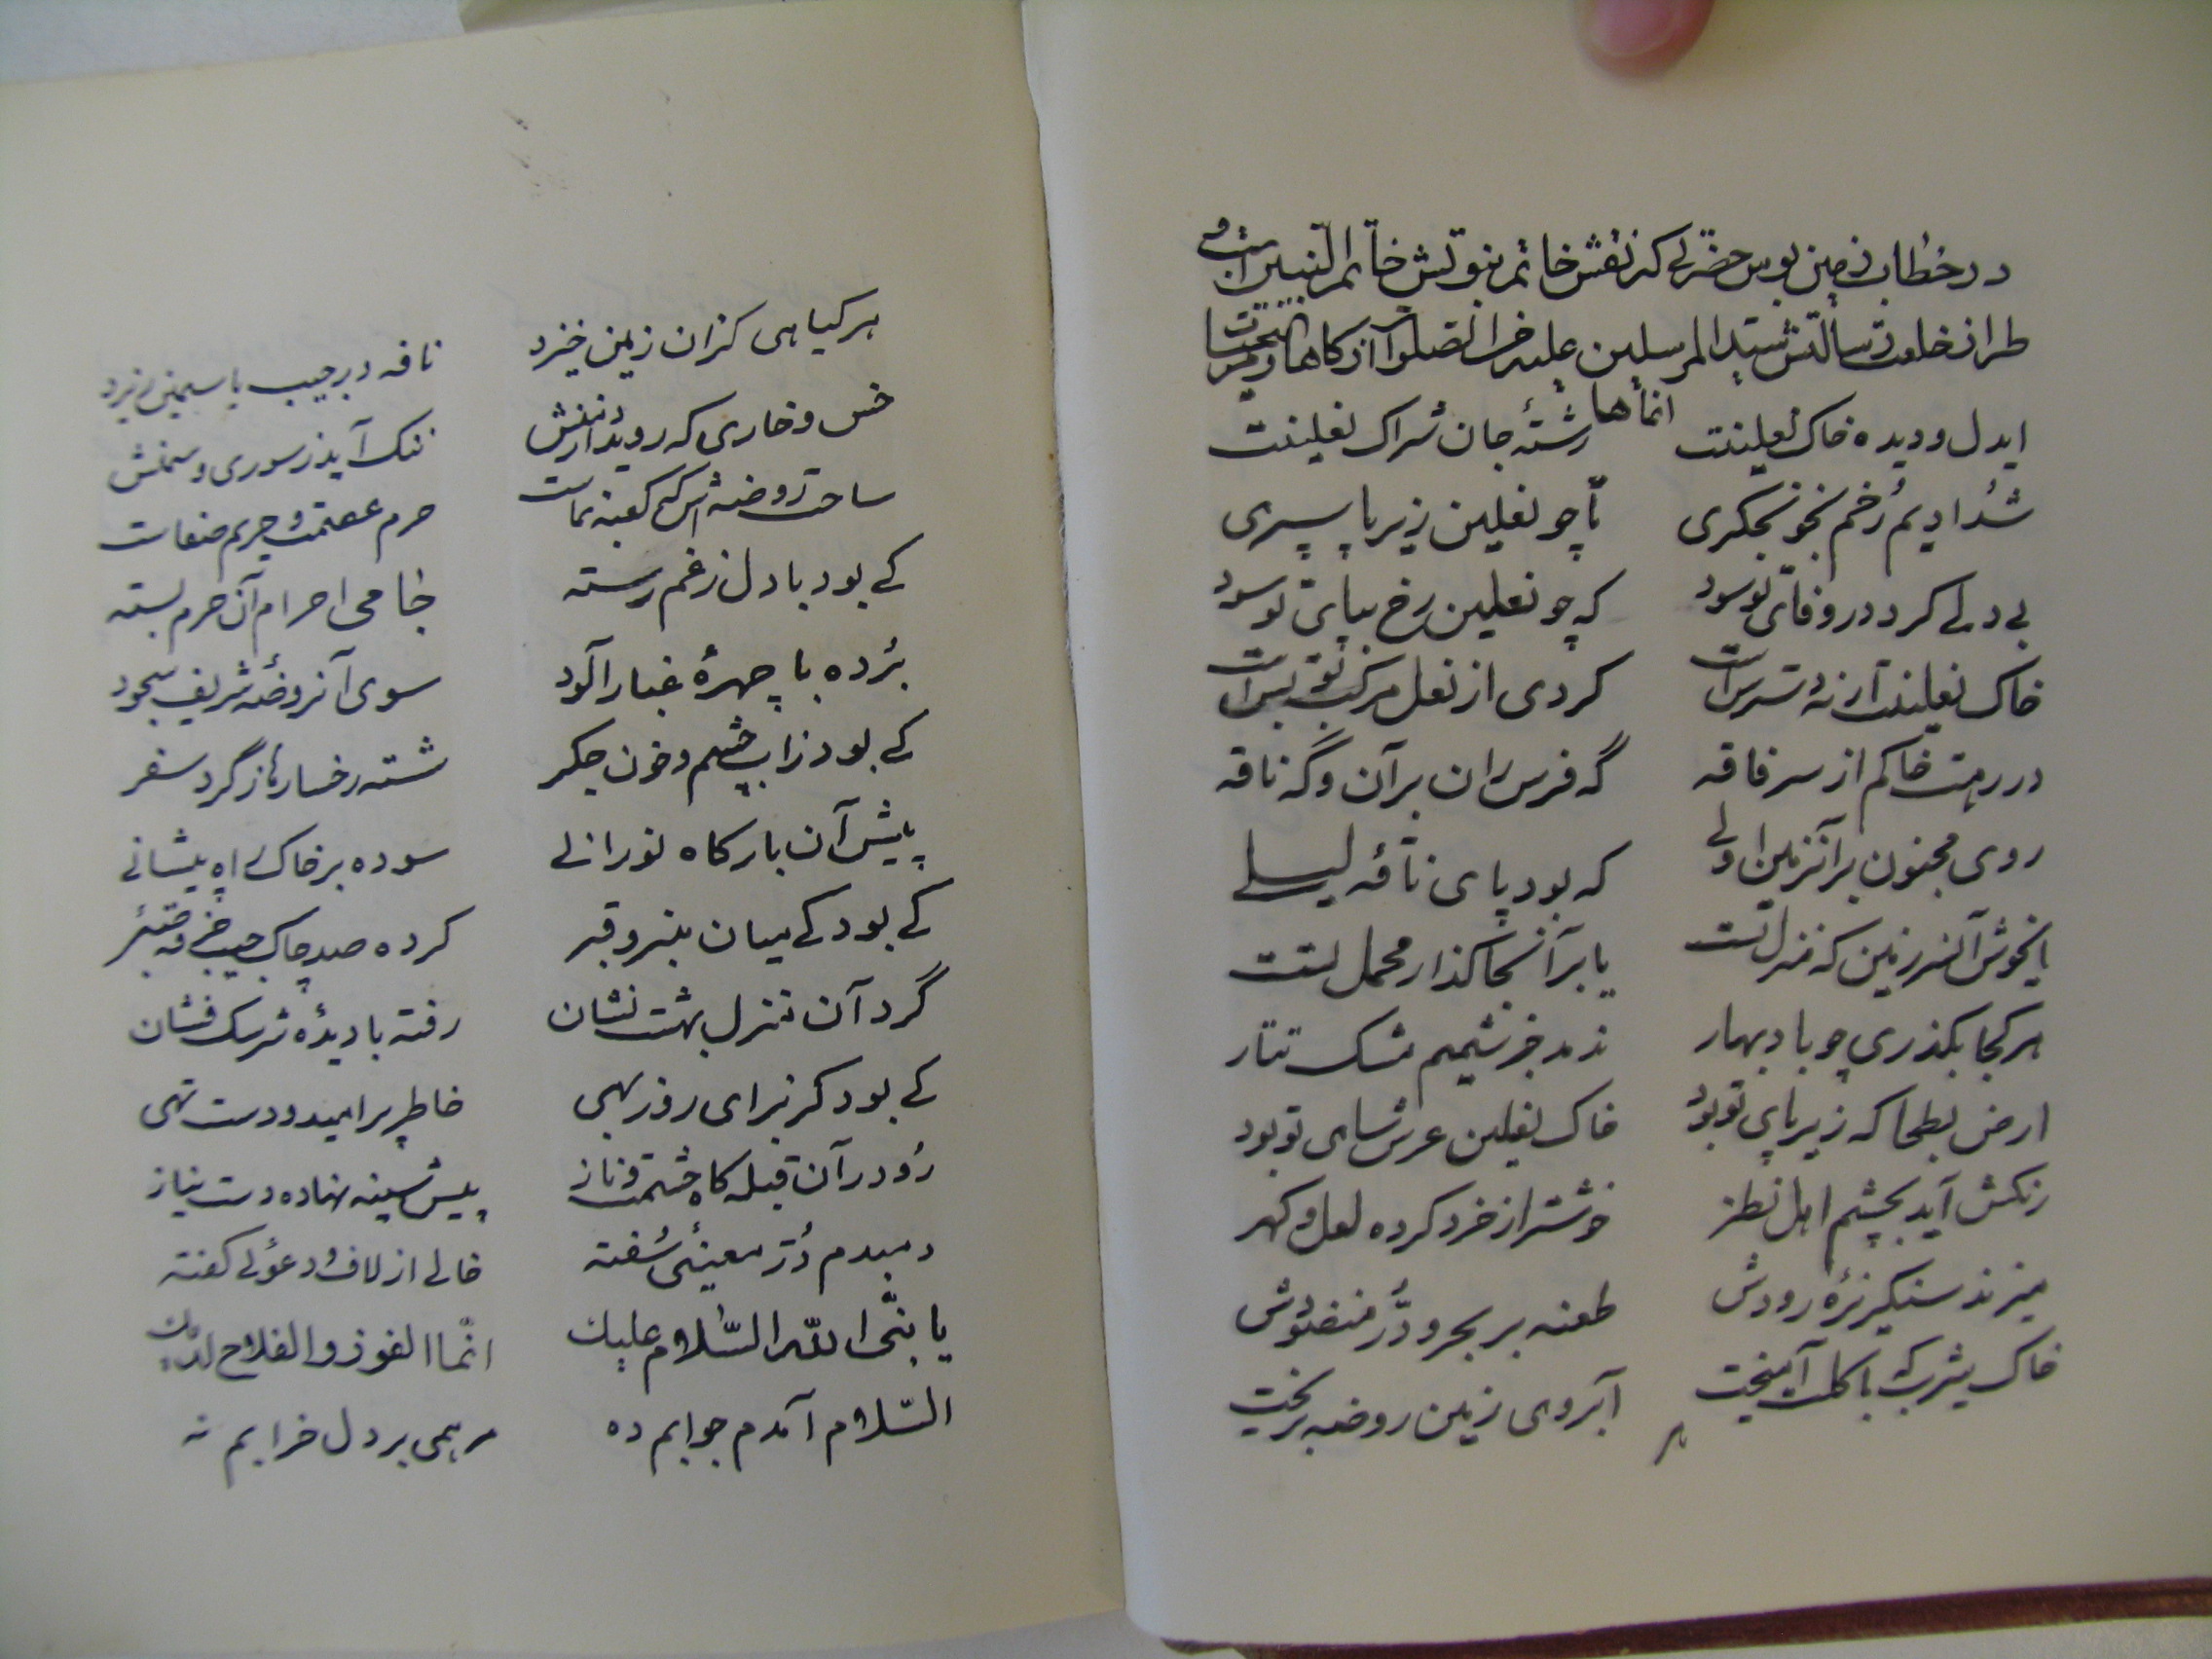 در خطاب زمین بوس حضرتی که نقش خاتم نبوتش خاتم النبیین است و
طراز خلعت رسالتش سید المرسلین علیه من الصلوات ازکاها و من التحیات
انماها
ایدل و دیده خاک نعلینت رشتهٔ جان شراک نعلینت
شد ادیم رخم بخون جگری تا چو نعلین زیر پا سپری
بی دلی کرد در وفای تو سود که چو نعلین رخ بپای تو سود
خاک نعلینت ار نه دسترس است گردی از نعل مرکب تو بس است
در رهت خاکم از سر فاقه گه فرس ران بر آن و گه ناقه
روی مجنون بر آنزمین اولی که بود پای ناقهٔ لیلی
ایخوش آنسرزمین که منزل تست یا بر آنجا گذار محمل تست
هر کجا بگذری چو باد بهار ندمد جز شمیم مشک تتار
ارض بطحا که زیر پای تو بود خاک نعلین عرش سای تو بود
رنکش آید بچشم اهل نظر خوشتر از خرد کرده لعل و کهر
میزند سنکریزهٔ رودش طعنه بر بحر و در منضودش
خاک یثرب که با کلت آمیخت آبروی زمین روضه بریخت
هر
هر کیاهی کزان زمین خیزد نافه در جیب یاسمین ریزد
خس و خاری که روید از دمنش ننک آید ز سوری و سمنش
ساحت روضه اش که کعبه نماست حرم عصمت و حریم صفاست
کے بود با دل ز غم رسته جامی احرام آن حرم بسته
برده با چهرهٔ غبار آلود سوی آنروضهٔ شریف سجود
کے بود ز آب چشم و خون جکر شسته رخساره از گرد سفر
پیش آن بارکاه نورانے سوده بر خاک راه پیشانے
کے بود کے میان منبر و قبر کرده صد چاک جیب خرقهٔ صبر
گرد آن منزل بهشت نشان رفته با دیدهٔ سرشک فشان
کے بود کز برای روز بهی خاطر پر امید و دست تهی
رو در آن قبله کاه حشمت و ناز پیش سینه نهاده دست نیاز
دمبدم در معنیٔ سفته خالے از لاف و دعوٰے کفته
یا نبی الله السلام علیك انما الفوز و الفلاح لدیك
السلام آمدم جوابم ده مرهمی بر دل خرابم نه